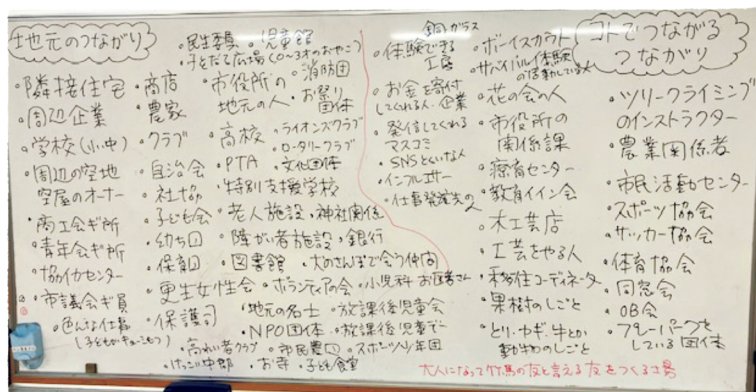 地元のつながり
・隣接住宅
・周辺企業
・学校(小中)
・周辺の空地
空屋のオーナー
・商工会ギ所
・青年会ギ所
・協働センター
・市議会ギ員
・色んな仕事
・商店
・農家
・クラブ
・自治会
・社協
・子ども会
・幼ち口
・保育口
・更生女性会
・保護司
・高れい者クラブ
・民生委員
・児童館
・子そだて広場(0〜3才のおやこ)
・市役所の
地元の人
・消防団
・お祭り
団体
・高校
・ライオンズクラブ
・ロータリークラブ
・PTA
・文化団体
・特別支援学校
・老人施設
・神社関係
・障がい者施設
・銀行
・図書館
・犬のさんぽで会う仲間
・ボランティアの会
・小児科 お医者さん
・地元の名士
・放課後児童会
・NPO団体
・放課後児童デー
・市民農口
・スポーツ少年団
・お寺
・子ども食堂
コトでつながる
つながり
銅 ガラス
・体験できる
工房
・お金を寄付
してくれる人・企業
・発信してくれる
マスコミ
・SNSとくいな人
・インフルエンサー
・仕事発注先の人
・ボーイスカウト
・サバイバル体験
の活動している人
・花の会の人
・市役所の
関係課
・療育センター
・教育イイン会
・木工芸店
・工芸をやる人
・移住コーディネータ
・果樹のしごと
・とり・ヤギ、牛とか
動物のしごと
・ツリークライミング
のインストラクター
・農業関係者
・市民活動センター
・スポーツ協会
・サッカー協会
・体育協会
・同窓会
・OB会
・プレーパークを
している団体
大人になって竹馬の友と言える友をつくる工場